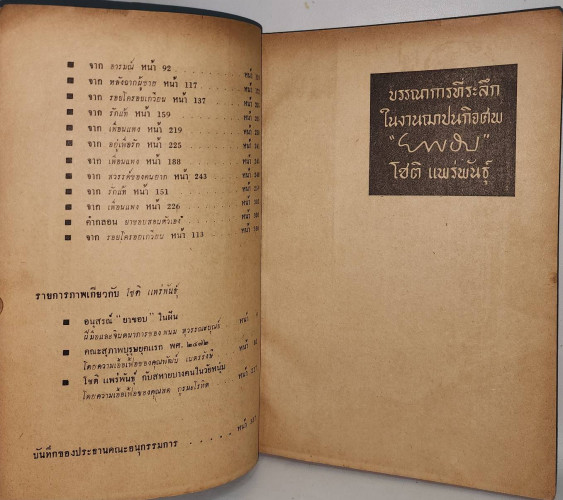 ■ จาก อารมณ์ หน้า 92 . . . . . หน้า
■ จาก หลังฉากผู้ชาย หน้า 117 . . . . . หน้า
■ จาก รอยโครอยเกวียน หน้า 137 . . . . . หน้า
■ จาก รักแท้ หน้า 159 . . . . . หน้า
■ จาก เพื่อนแพง หน้า 219 . . . . . หน้า
■ จาก อยู่เพื่อรัก หน้า 225 . . . . . หน้า
■ จาก เพื่อนแพง หน้า 188 . . . . . หน้า
■ จาก สวรรค์ของคนยาก หน้า 243 . . . . . หน้า
■ จาก รักแท้ หน้า 151 . . . . . หน้า
■ จาก เพื่อนแพง หน้า 226 . . . . . หน้า
■ คำกลอน ยาขอบสอบตัวเอง . . . . . หน้า
■ จาก รอยโครอยเกวียน หน้า 113 . . . . . หน้า
รายการภาพเกี่ยวกับ โชติ แพร่พันธุ์
■ อนุสรณ์ "ยาขอบ" ในฝัน . . . . . หน้า
ฝีมือและจินตนาการของ พนม สุวรรณะบุณย์
■ คณะสุภาพบุรุษยุคแรก พศ. ๒๔๗๒ . . . . . หน้า
โดยความเอื้อเฟื้อของคุณพัฒน์ เนตรรังษี
■ โชติ แพร่พันธุ์ กับสหายบางคนในวัยหนุ่ม . . หน้า
โดยความเอื้อเฟื้อของคุณสด กูรมะโรหิต
บันทึกของประธานคณะอนุกรรมการ . . . . . หน้า
บรรณาการที่ระลึก
ในงานฌาปนกิจศพ
"ยาขอบ"
โชติ แพร่พันธุ์